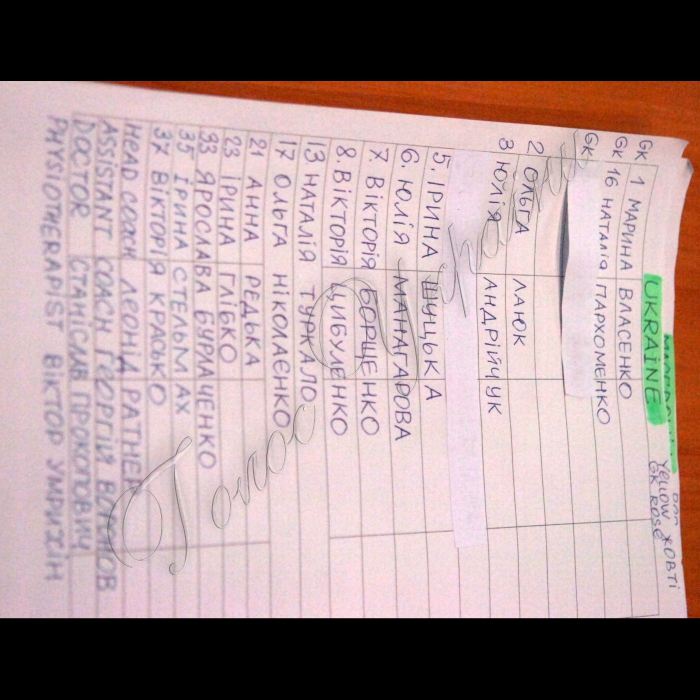 UKRAINE
Yellow ЖОВТІ
GK ROSE
GK 1 МАРИНА ВЛАСЕНКО
GK 16 НАТАЛІЯ ПАРХОМЕНКО
GK
2 ОЛЬГА ЛАЮК
3 ЮЛІЯ АНДРІЙЧУК
5. ІРИНА ШУЦЬКА
6. ЮЛІЯ МАНАГАРОВА
7 ВІКТОРІЯ БОРЩЕНКО
8. ВІКТОРІЯ ЦИБУЛЕНКО
13 НАТАЛІЯ ТУРКАЛО
17 ОЛЬГА НІКОЛАЄНКО
21 АННА РЕДЬКА
23 ІРИНА ГЛІБКО
33 ЯРОСЛАВА БУРЛАЧЕНКО
35 ІРИНА СТЕЛЬМАХ
37 ВІКТОРІЯ КРАСЬКО
HEAD COACH ЛЕОНІД РАТНЕР
ASSISTANT COACH ГЕОРГІЙ
DOCTOR СТАНІСЛАВ ПРОКОПОВИЧ
PHYSIOTHERAPIST ВІКТОР УМРИХІН
Голос